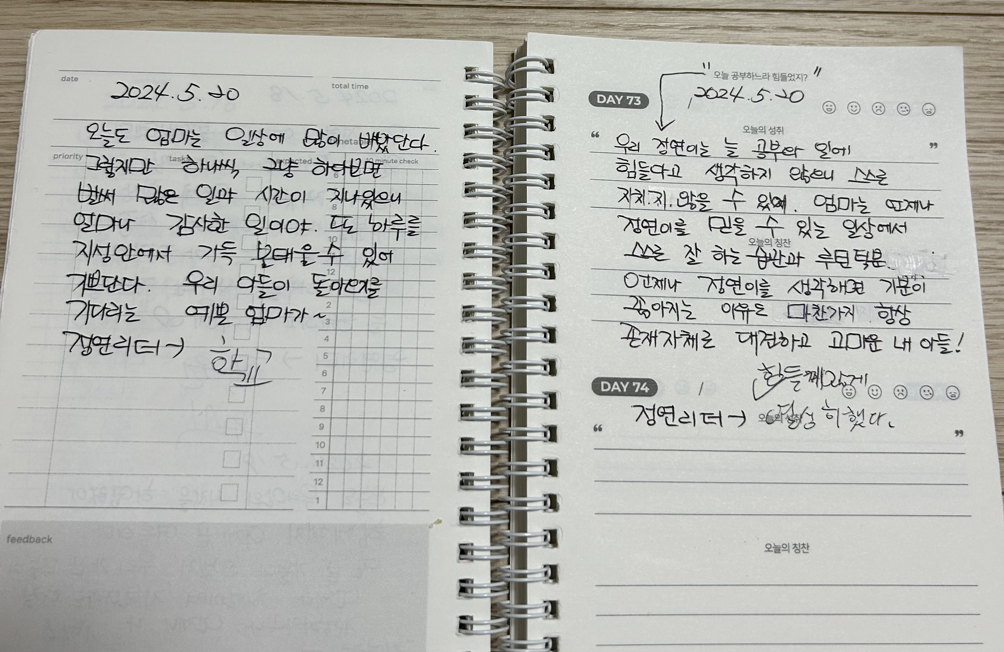 date
total time
2024.5.20
오늘도 엄마는 일상에 많이 바빴단다.
priority
task
10 minute check
그렇지만 하나씩 그냥 하다보면
벌써 많은 일과 시간이 지나있으니
얼마나 감사한 일이야. 또 하루를
지성안에서 가득 보태울 수 있어
기쁘단다. 우리 아들이 돌아오기를
기다리는 예쁜 엄마가~
정연리더→ 학교
feedback
"오늘 공부하느라 힘들었지?"
DAY 73
2024.5.20
오늘의 성취
" 우리 정연이는 늘 공부와 일에 "
힘들다고 생각하지 않으니 스스로
지치지 않을 수 있어. 엄마는 언제나
정연이를 믿을 수 있는 일상에서
오늘의 칭찬
스스로 잘 하는 습관과 루틴덕분.
언제나 정연이를 생각하면 기분이
좋아지는 이유는 마찬가지 항상
존재자체로 대견하고 고마운 내 아들!
DAY 74
/
힘들께
오늘의 성취
정연리더→ 열성히했다.
" "
오늘의 칭찬